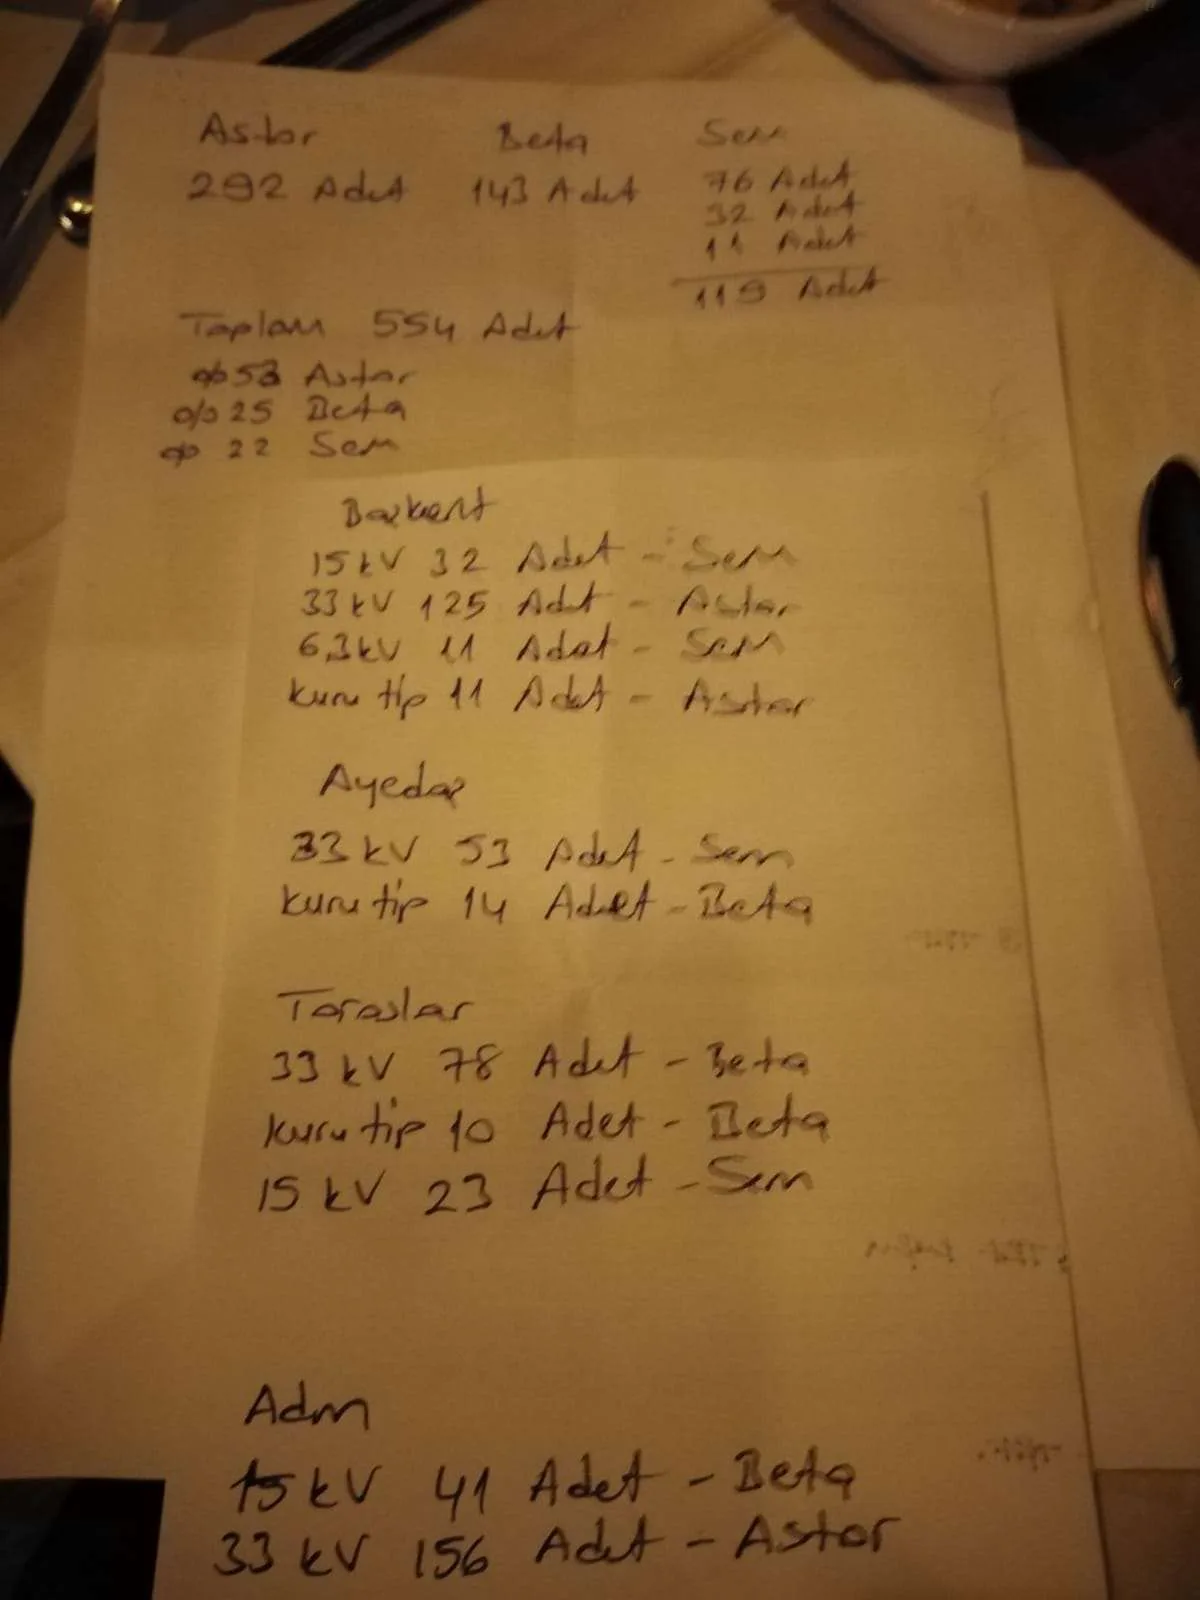 Astor Beta Sem
292 Adet 143 Adet 76 Adet
32 Adet
11 Adet
119 Adet
Toplam 554 Adet
%53 Astor
%25 Beta
% 22 Sem
Başkent
15 kV 32 Adet - Sem
33 kV 125 Adet - Astor
6,3 kV 11 Adet - Sem
kuru tip 11 Adet - Astor
Ayedaş
33 kV 53 Adet - Sem
kuru tip 14 Adet - Beta
Toroslar
33 kV 78 Adet - Beta
kuru tip 10 Adet - Beta
15 kV 23 Adet - Sem
Adm
15 kV 41 Adet - Beta
33 kV 156 Adet - Astor